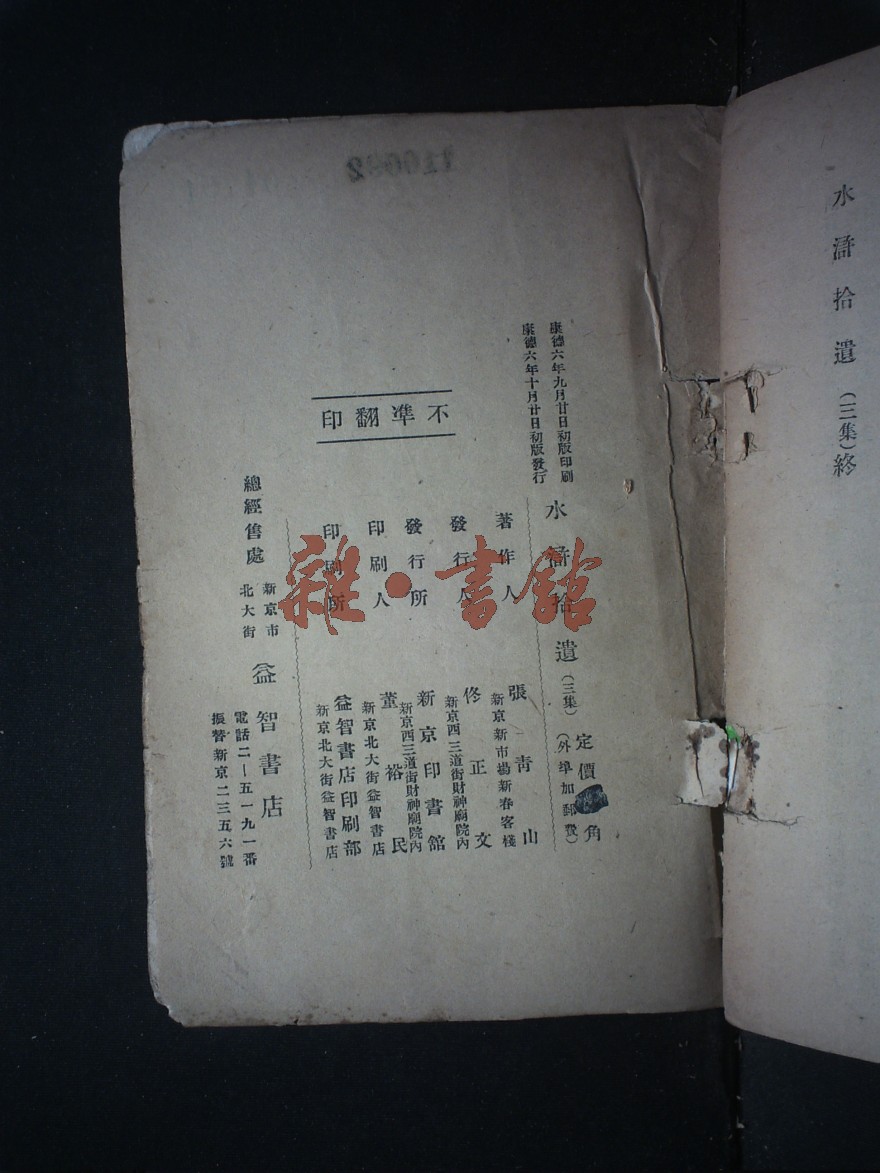 水滸拾遺（三集）終
康德六年九月廿日初版印刷
康德六年十月廿日初版發行
水滸拾遺（三集）定價 角
（外埠加郵費）
著作人 張青山
新京新市場新春客棧
發行人 佟正文
新京西三道街財神廟院內
發行所 新京印書館
新京西三道街財神廟院內
印刷人 董裕民
新京北大街益智書店
印刷所 益智書店印刷部
新京北大街益智書店
不準翻印
總經售處 新京市北大街 益智書店
電話二—五一九一番
振替新京二三五六號
雜·書館